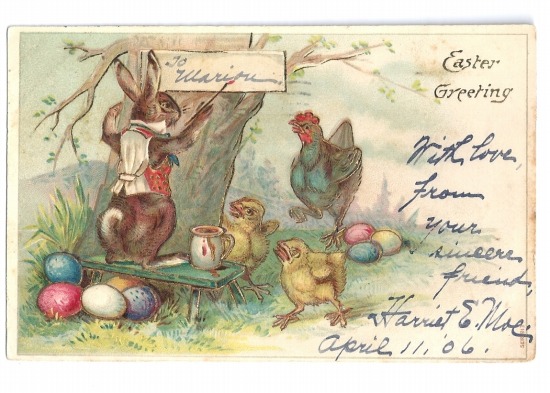 To
Marion
Easter
Greeting
With love,
from
your
sincere
friend,
Harriet E. Moe,
April 11, '06.